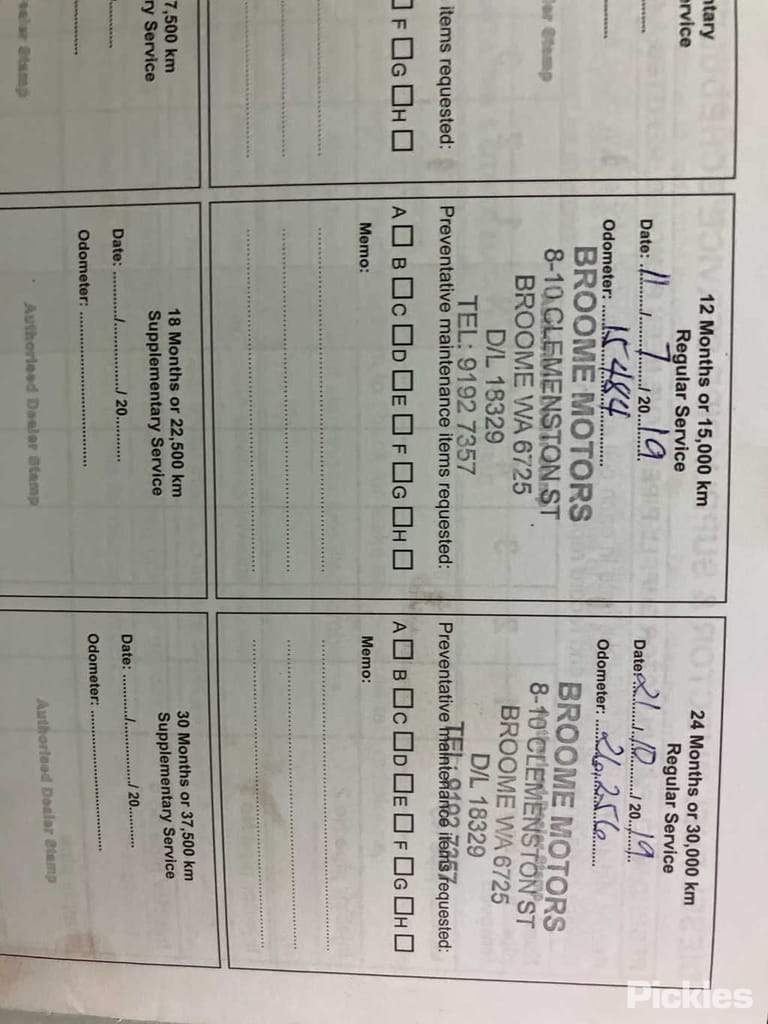 ntary
ervice
er Stamp
items requested:
F G H
12 Months or 15,000 km
Regular Service
Date: 11 / 7 / 20 19
Odometer: 15484
BROOME MOTORS
8-10 CLEMENSTON ST
BROOME WA 6725
D/L 18329
TEL: 9192 7357
Preventative maintenance items requested:
A B C D E F G H
Memo:
24 Months or 30,000 km
Regular Service
Date: 21 / 10 / 20 19
Odometer: 26,256
BROOME MOTORS
8-10 CLEMENSTON ST
BROOME WA 6725
D/L 18329
TEL: 9192 7357
Preventative maintenance items requested:
A B C D E F G H
Memo:
7,500 km
ry Service
ealer Stamp
18 Months or 22,500 km
Supplementary Service
Date: ........../............../ 20..........
Odometer: ..............................
Authorised Dealer Stamp
30 Months or 37,500 km
Supplementary Service
Date: ........../............../ 20..........
Odometer: ..............................
Authorised Dealer Stamp
Pickles